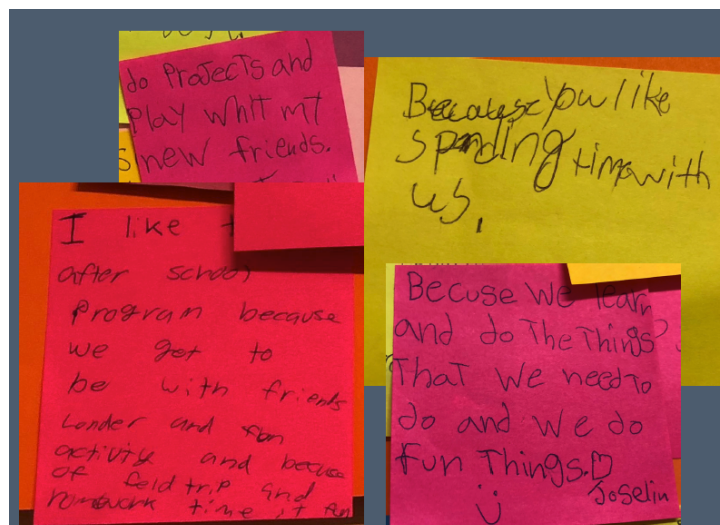 do Projects and
Play whit mt
new friends.
Because you like
spending time with
us.
I like
after school
program because
we get to
be with friends
Londer and fun
activity and because
of feild trip and
homework time it fun
Becuse We learn
and do The Things
That We need to
do and We do
Fun Things.
Joselin